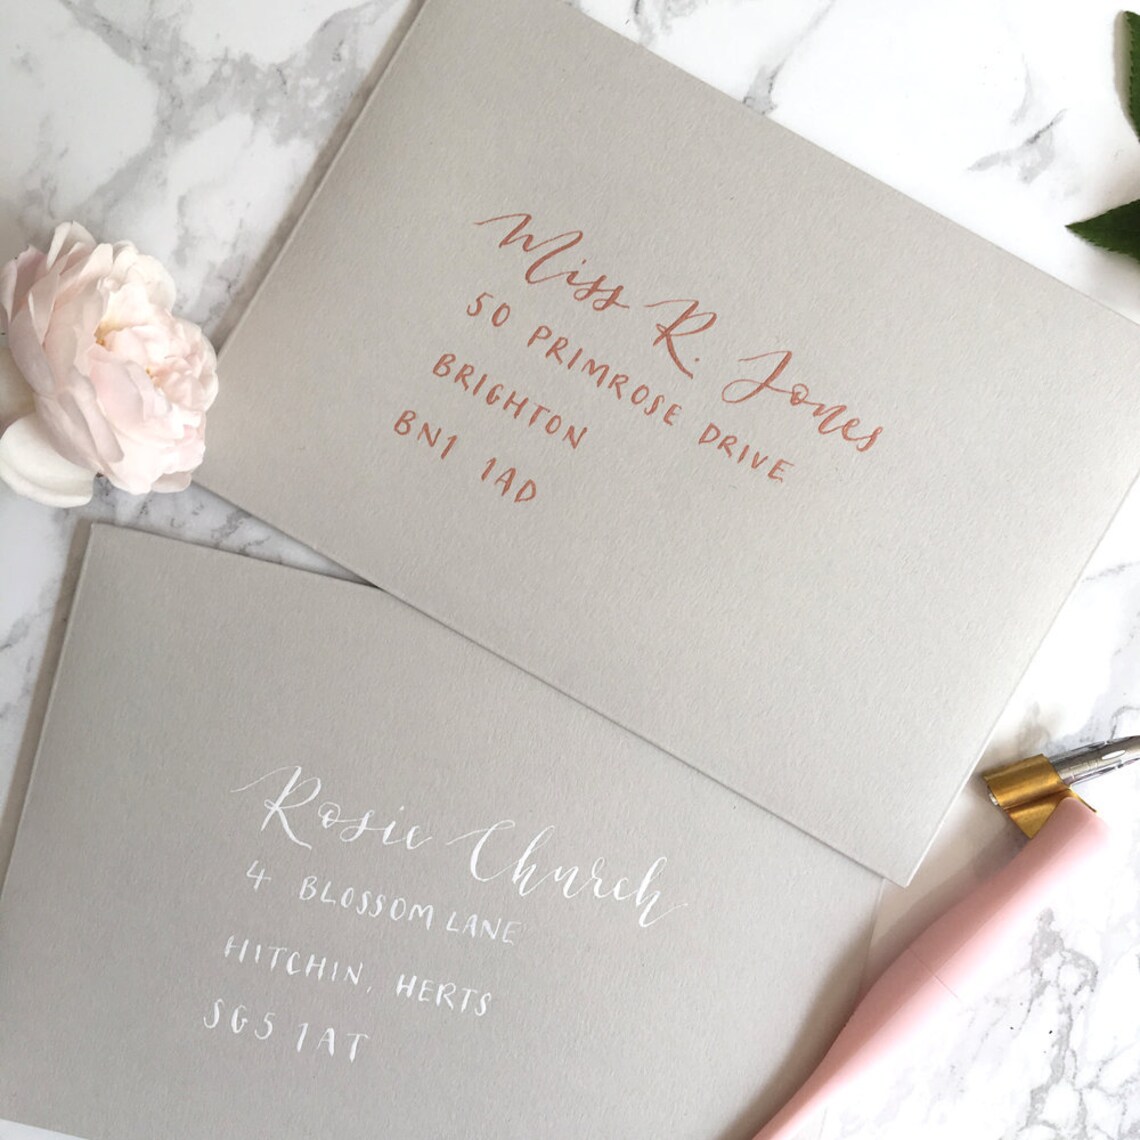 Miss R. Jones
50 PRIMROSE DRIVE
BRIGHTON
BN1 1AD
Rosie Church
4 BLOSSOM LANE
HITCHIN, HERTS
SG5 1AT